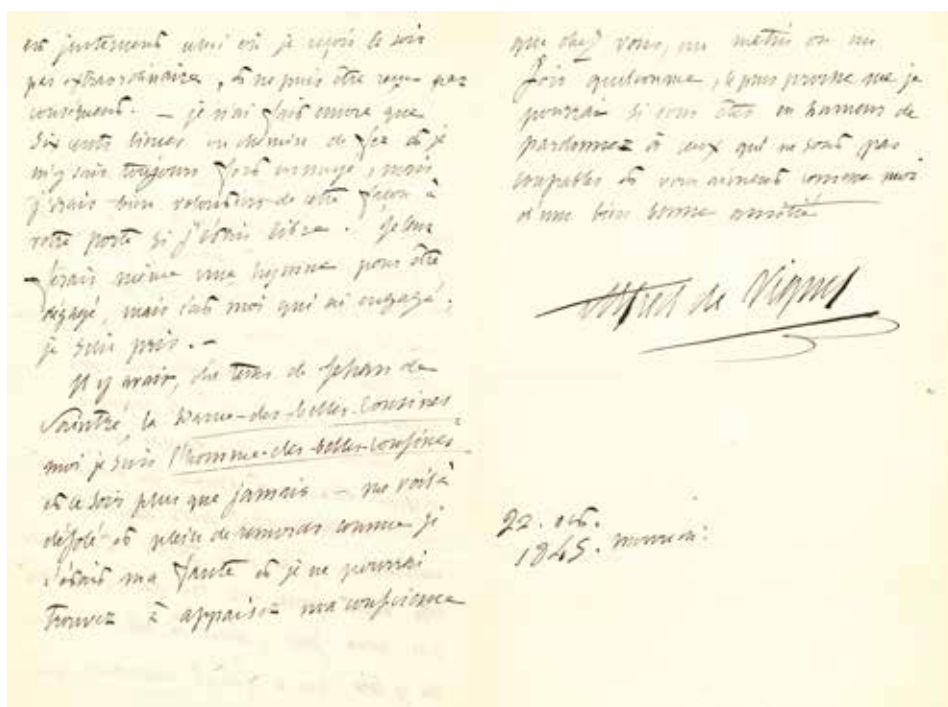 est justement celui où je reçois le soir
par extraordinaire, et ne puis être reçu par
conséquent. — je n'ai fait encore que
six cents lieues en chemin de fer et je
m'y suis toujours fort ennuyé, mais
j'irais bien volontiers de cette façon à
votre porte si j'étais libre. je
ferais même une pour être
dégagé, mais c'est moi qui ai engagé,
je suis pris. —
Il y avait, du tems de Jehan de
Saintré, la Dame-des-belles-Cousines
moi je suis l'homme-des-belles-cousines
et ce soir plus que jamais. — me voilà
désolé et plein de remords comme si
c'était ma faute et je ne pourrai
trouver à appaiser ma conscience
que chez vous, un matin ou un
soir quelconque, le plus proche que je
pourrai si vous êtes en humeur de
pardonner à ceux qui ne sont pas
coupables et vous aiment comme moi
d'une bien bonne amitié
Alfred de Vigny
22. oct.
1845. mercredi.